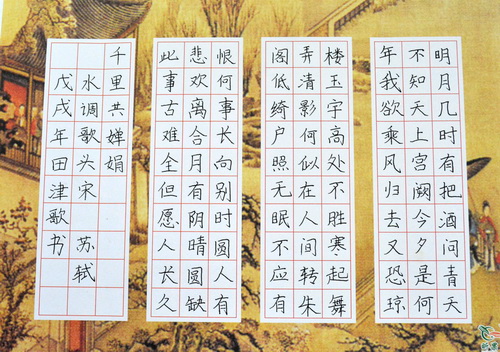 明月几时有把酒问青天
不知天上宫阙今夕是何
年我欲乘风归去又恐琼
楼玉宇高处不胜寒起舞
弄清影何似在人间转朱
阁低绮户照无眠不应有
恨何事长向别时圆人有
悲欢离合月有阴晴圆缺
此事古难全但愿人长久
千里共婵娟
水调歌头宋 苏轼
戊戌年田津歌书